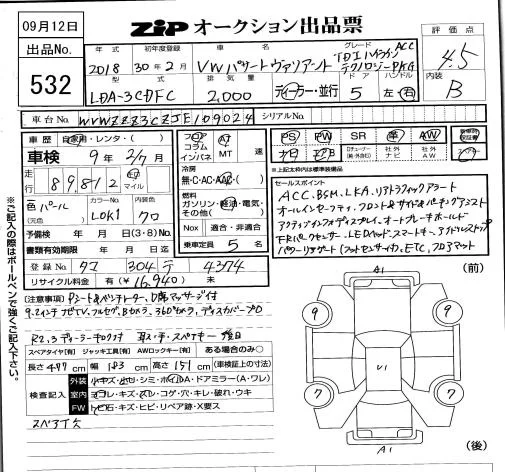 09月12日
ZIP オークション出品票
出品No.
532
年式 初年度登録 車名 グレード ドア ハンドル
2018 30年2月 VWパサートヴァリアント TDIハイライン ACC テクノロジーPKG
型式 排気量
LDA-3CDFC 2,000 ディーラー・並行 5 左・右
評価点
4.5
内装
B
車台No. WVWZZZ3CZJE109024 シリアルNo.
車歴 自家用・レンタ・( )
車検 9年2/7月
走行 89812 km マイル
色 パール
(元色)
カラーNo. LOK1
内装色 クロ
予備検 年 月 日(3・8)No.
書類有効期限 年 月 日迄
登録No. 304 テ 4374
リサイクル料金 有(¥16,940) 未
フロア コラム インパネ
AT MT 速
冷房 無・C・AC・AAC
燃料
ガソリン・軽油・電気・その他( )
Nox 適合・非適合
乗車定員 5 名
PS PW SR 革 AW
社外ナビ 社外AV
※上記太枠内は標準装備品
セールスポイント
ACC、BSM、LKA、リアトラフィックアラート
オールインセーフティ、フロント&サイド&パーキングアシスト
アクティブインフォディスプレイ、オートブレーキホールド
FRパークセンサー、LEDヘッド、スマートキー、アイドルストップ
パワーリヤゲート(フットセンサー付)、ETC、フロアマット
(注意事項) Pシート&ベンチレーター、D席マッサージ付
9.2インチナビTV、フルセグ、Bカメラ、360°カメラ、ディスカバープロ
R2.3ディーラーキロクブ 取説・手・スペアキー 後日
スペアタイヤ[有] ジャッキ工具[有] AWロックキー[有] ある場合のみ○
長さ 477cm 幅 183cm 高さ 151cm (車検証上の寸法)
検査記入
外装 小キズ・凹・シミ・ホイルA・ドアミラー(A・ワレ)
室内 ヨゴレ・キズ・スレ・コゲ・穴・キレ・破れ・ウキ
FW トビ石・キズ・ヒビ・リペア跡・X要ス
スペアT欠
※ご記入の際はボールペンで強くご記入下さい。
(前)
A1
9 9
U1
7 7
A1
(後)